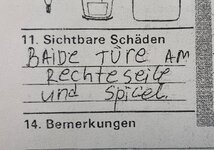 11. Sichtbare Schäden
BAIDE TÜRE AM
Rechteseite
und Spicel.
14. Bemerkungen